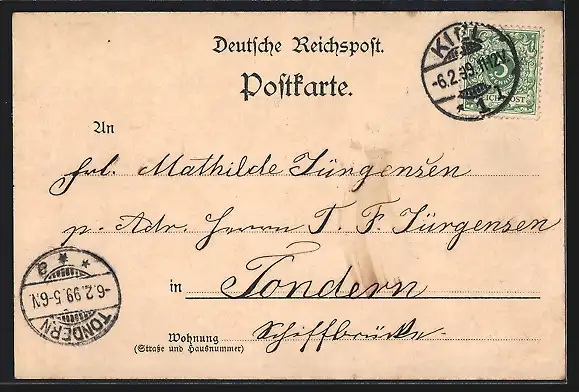 Deutsche Reichspost.
Postkarte.
KIEL
-6.2.99.11-12V
* 1 l
5
REICHSPOST
An
Frl. Mathilde Jürgensen
p. Adr. Herrn T. F. Jürgensen
in Tondern
Wohnung Schiffbrücke.
(Straße und Hausnummer)
TONDERN
-6.2.99.5-6N.
* * a